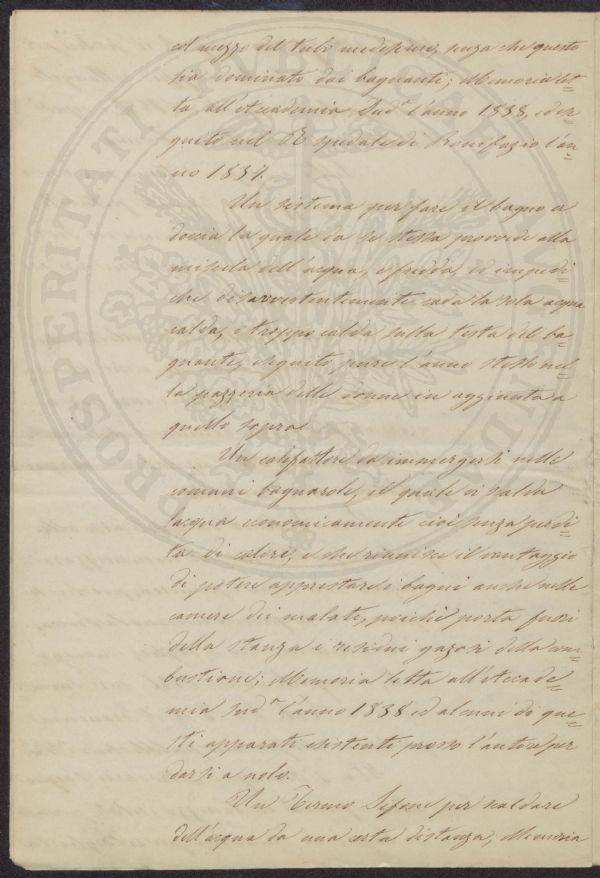 col mezzo del tubo medesimo, senza che questo
sia dominato dai bagnanti; Memoria let=
ta all'Accademia Sud.ª l'anno 1838, ed es=
eguito nel R. Spedale di Bonifazio l'an=
no 1837.
Un sistema per fare il bagno a
doccia la quale da se stessa provvede alla
miscela dell'acqua, e fredda, ed impedi=
che disavvertentemente cada la sola acqua
calda, o troppo calda sulla testa del ba=
gnante, eseguito pure l'anno stesso nel=
la pazzeria delle donne in aggiunta a
quello sopra.
Un calefattore da immergersi nelle
comuni bagnarole, il quale vi scalda
l'acqua economicamente cioè senza perdi=
ta di calore, e che riunisce il vantaggio
di potere apprestare i bagni anche nelle
camere dei malati, poichè porta fuori
della stanza i residui gazosi della com=
bustione; Memoria letta all'Accade=
mia Sud.ª l'anno 1838 ed alcuni di que=
sti apparati esistenti presso l'autore per
darsi a nolo.
Un Termo Sifone per scaldare
dell'acqua da una certa distanza; Memoria
PROSPERITATI PVBLICAE